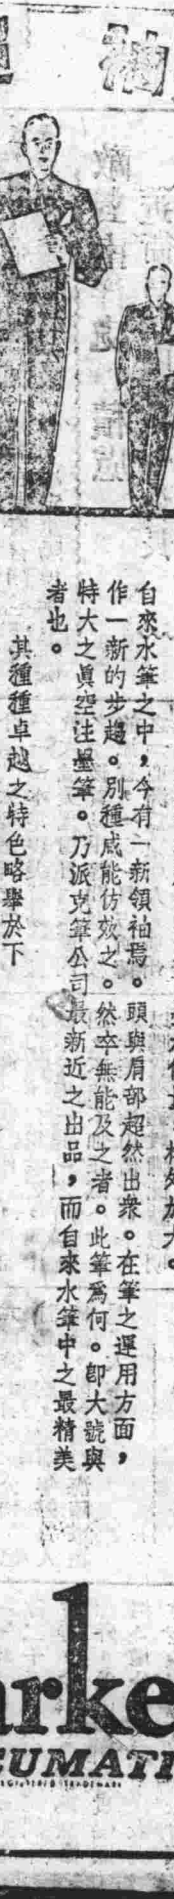 袖
自來水筆之中，今有一新領袖焉。頭與肩部超然出衆。在筆之運用方面，
作一新的步趨。別種咸能仿效之。然卒無能及之者。此筆爲何。卽大號與
特大之眞空注墨筆。乃派克筆公司最新近之出品，而自來水筆中之最精美
者也。
其種種卓越之特色略舉於下
arke
EUMATI
REGISTERED TRADEMARK